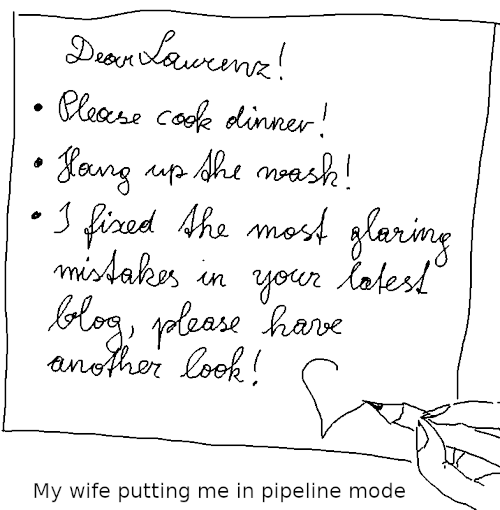 Dear Laurenz!
• Please cook dinner!
• Hang up the wash!
• I fixed the most glaring
mistakes in your latest
blog, please have
another look!
My wife putting me in pipeline mode